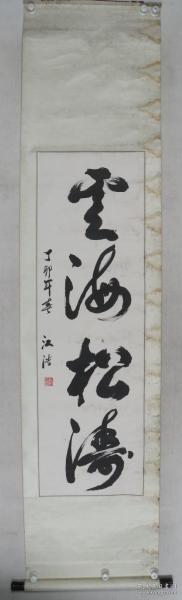 雲海松濤
丁卯年春
江浩